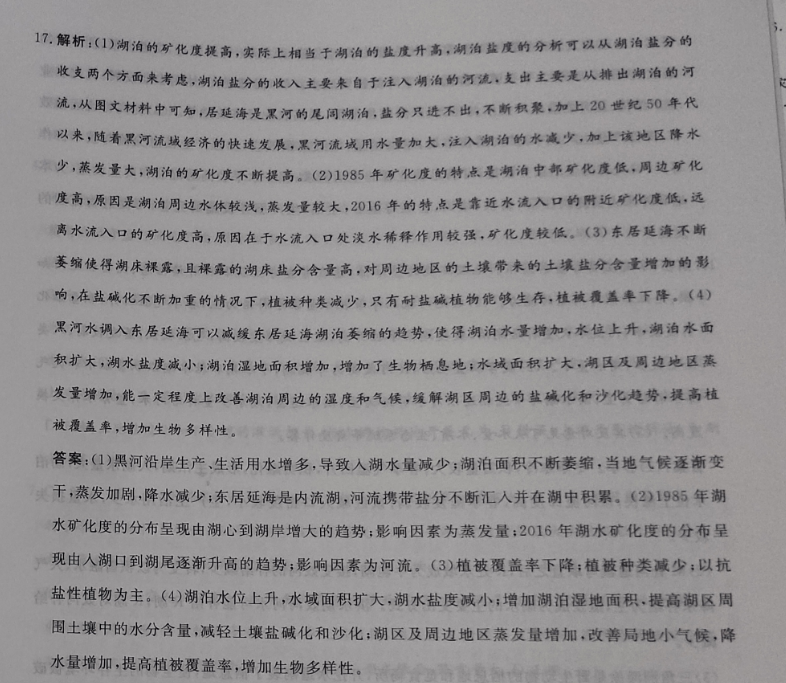 17.解析:(1)湖泊的矿化度提高,实际上相当于湖泊的盐度升高,湖泊盐度的分析可以从湖泊盐分的
收支两个方面来考虑,湖泊盐分的收入主要来自于注入湖泊的河流,支出主要是从排出湖泊的河
流,从图文材料中可知,居延海是黑河的尾闾湖泊,盐分只进不出,不断积聚,加上20世纪50年代
以来,随着黑河流域经济的快速发展,黑河流域用水量加大,注入湖泊的水减少,加上该地区降水
少,蒸发量大,湖泊的矿化度不断提高。(2)1985年矿化度的特点是湖泊中部矿化度低,周边矿化
度高,原因是湖泊周边水体较浅,蒸发量较大,2016年的特点是靠近水流入口的附近矿化度低,远
离水流入口的矿化度高,原因在于水流入口处淡水稀释作用较强,矿化度较低。(3)东居延海不断
萎缩使得湖床裸露,且裸露的湖床盐分含量高,对周边地区的土壤带来的土壤盐分含量增加的影
响,在盐碱化不断加重的情况下,植被种类减少,只有耐盐碱植物能够生存,植被覆盖率下降。(4)
黑河水调入东居延海可以减缓东居延海湖泊萎缩的趋势,使得湖泊水量增加,水位上升,湖泊水面
积扩大,湖水盐度减小;湖泊湿地面积增加,增加了生物栖息地;水域面积扩大,湖区及周边地区蒸
发量增加,能一定程度上改善湖泊周边的湿度和气候,缓解湖区周边的盐碱化和沙化趋势,提高植
被覆盖率,增加生物多样性。
答案:(1)黑河沿岸生产、生活用水增多,导致入湖水量减少;湖泊面积不断萎缩,当地气候逐渐变
干,蒸发加剧,降水减少;东居延海是内流湖,河流携带盐分不断汇入并在湖中积累。(2)1985年湖
水矿化度的分布呈现由湖心到湖岸增大的趋势;影响因素为蒸发量;2016年湖水矿化度的分布呈
现由入湖口到湖尾逐渐升高的趋势;影响因素为河流。(3)植被覆盖率下降;植被种类减少;以抗
盐性植物为主。(4)湖泊水位上升,水域面积扩大,湖水盐度减小;增加湖泊湿地面积,提高湖区周
围土壤中的水分含量,减轻土壤盐碱化和沙化;湖区及周边地区蒸发量增加,改善局地小气候,降
水量增加,提高植被覆盖率,增加生物多样性。